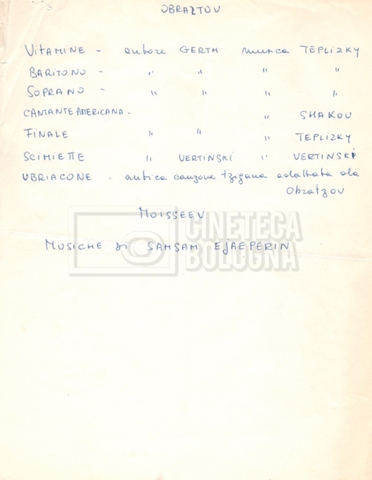 OBRAZTOV
VITAMINE - autore GERTH musica TEPLIZKY
BARITONO - " " " "
SOPRANO - " " " "
CANTANTE AMERICANA - " SHAKOV
FINALE " " " TEPLIZKY
SCIMIETTE " VERTINSKI " VERTINSKI
UBRIACONE - antica canzone tzigana adattata da
Obratzov
MOISSEEV
MUSICHE di SAMSAM EJAEPERIN
CINETECA
BOLOGNA